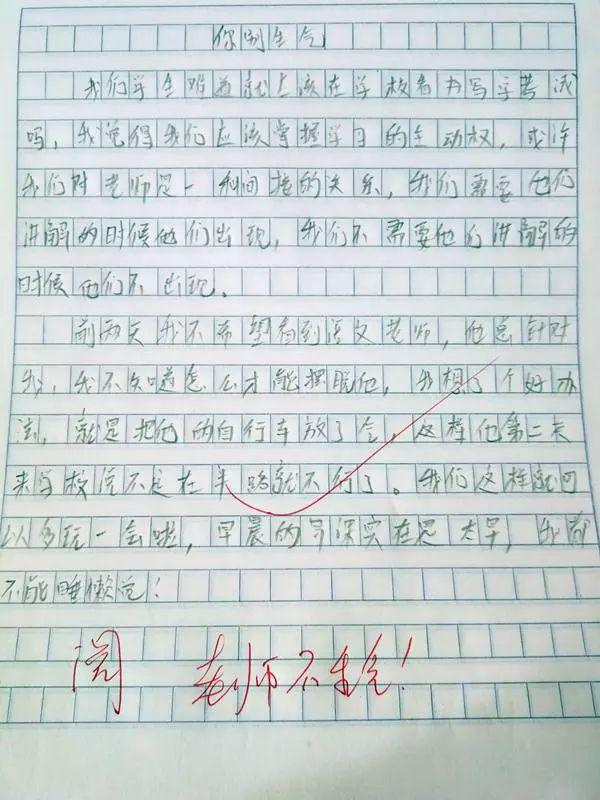 你别生气
我们学生难道就上该在学校看书写字考试
吗，我觉得我们应该掌握学习的主动权，或许
我们对老师是一种间接的关系，我们需要他们
讲解的时候他们出现，我们不需要他们讲解的
时候他们不出现。
前两天我不希望看到语文老师，他总针对
我，我不知道怎么才能摆脱他，我想了个好办
法，就是把他的自行车放了气，这样他第二天
来学校说不定在半路就不行了。我们这样就可
以多玩一会啦，早晨的早课实在是太早，我都
不能睡懒觉！
阅 老师不生气！